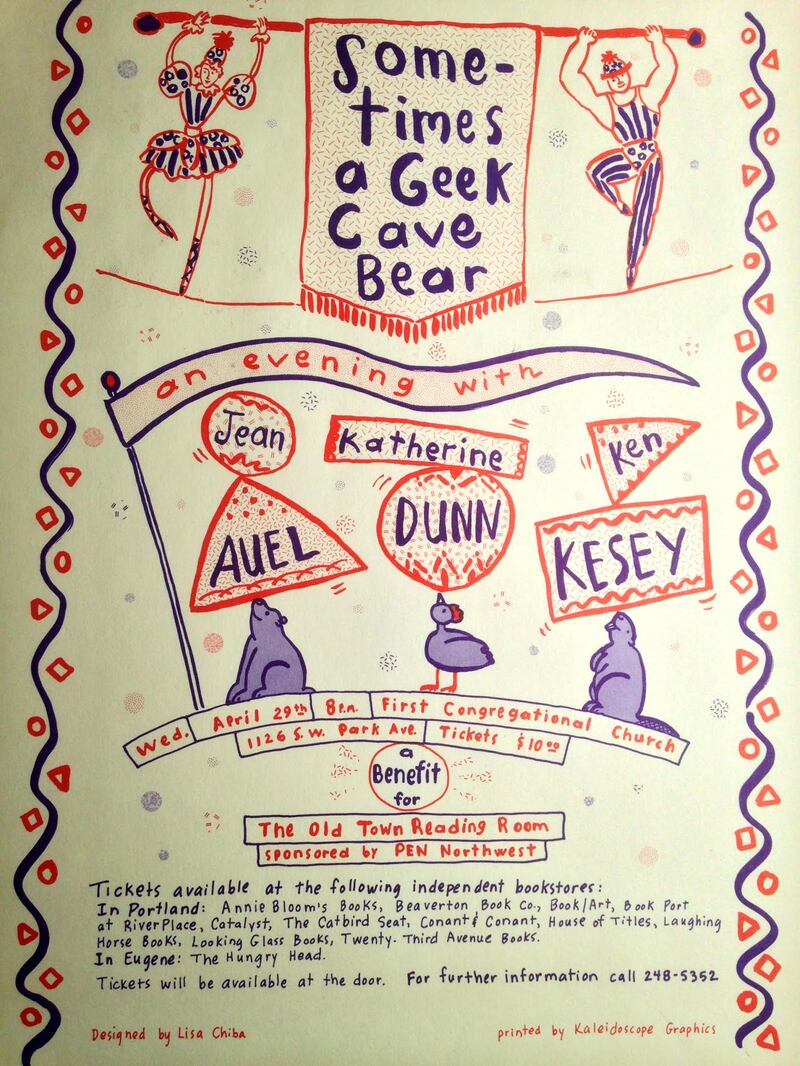 Some-
times
a Geek
Cave
Bear
an evening with
Jean
AUEL
Katherine
DUNN
Ken
KESEY
Wed. April 29th 8 P.M. First Congregational Church
1126 S.W. Park Ave. Tickets $10.00
a
Benefit
for
The Old Town Reading Room
sponsored by PEN Northwest
Tickets available at the following independent bookstores:
In Portland: Annie Bloom's Books, Beaverton Book Co., Book/Art, Book Port
at RiverPlace, Catalyst, The Catbird Seat, Conant & Conant, House of Titles, Laughing
Horse Books, Looking Glass Books, Twenty-Third Avenue Books.
In Eugene: The Hungry Head.
Tickets will be available at the door. For further information call 248-5352
Designed by Lisa Chiba
printed by Kaleidoscope Graphics